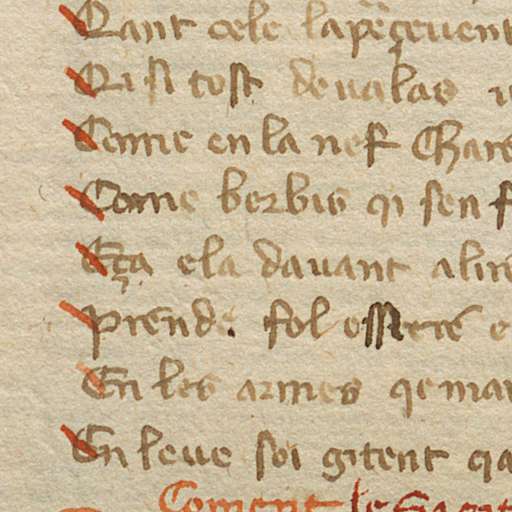 Qant cele laperçevent
Qi si tost devalas
Come en la nef Char
Come berbis qi sen f
Eça ela davant alire
Prende fol essere e
En les armes qe mar
En leve soi gitent qa
Coment le Sagit